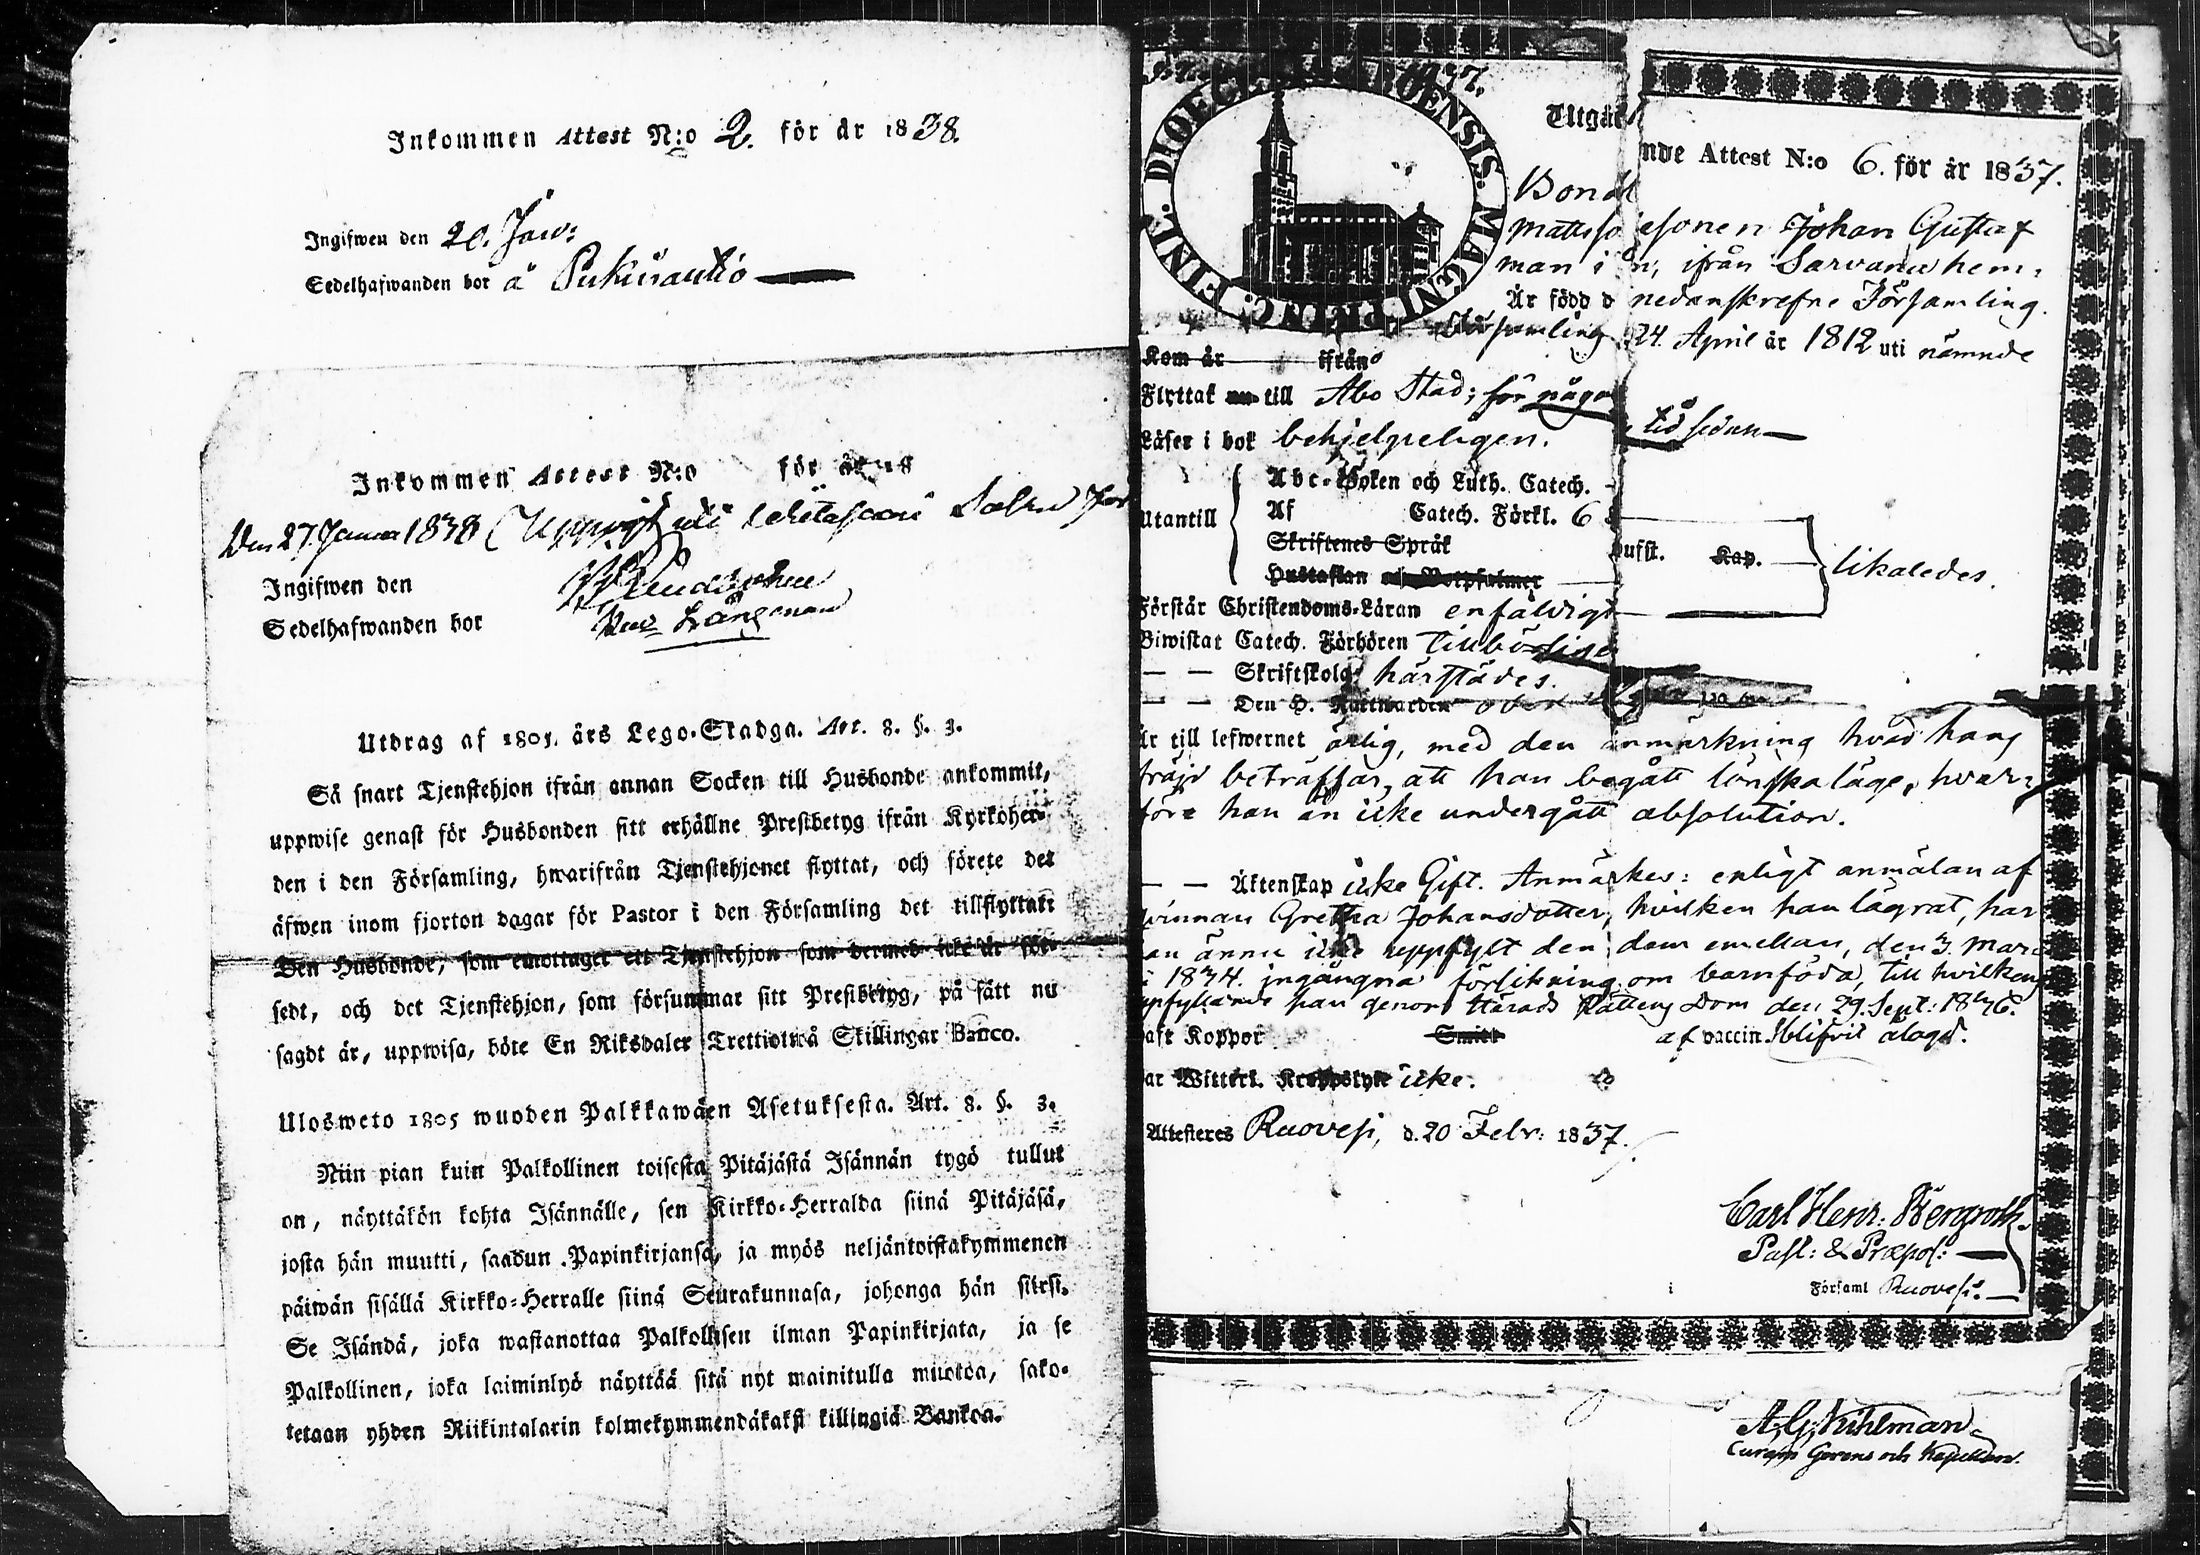 Inkommen Attest N:o 2. för år 1838.
Ingifwen den 20. Janu:
Sedelhafwanden bor å
Inkommen Attest N:o för år 18
Den 27. Januar 1838
Ingifwen den
Sedelhafwanden bor
Utdrag af 1805. års Lego-Stadga. Art. 8. §. 3.
Så snart Tjenstehjon ifrån annan Socken till Husbonde ankommit,
uppwise genast för Husbonden sitt erhållne Prestbetyg ifrån Kyrkoher-
den i den Församling, hwarifrån Tjenstehjonet flyttat, och förete det
äfwen inom fjorton dagar för Pastor i den Församling det tillflyttat:
Den Husbonde, som emottager ett Tjenstehjon som dermed icke är för-
sedt, och det Tjenstehjon, som försummar sitt Prestbetyg, på sätt nu
sagdt är, uppwisa, böte En Riksdaler Trettiotwå Skillingar Banco.
Ulosweto 1805 wuoden Palkkawäen Asetuksesta. Art. 8. §. 3.
Niin pian kuin Palkollinen toisesta Pitäjästä Isännän tygö tullut
on, näyttäkön kohta Isännälle, sen Kirkko-Herralda siinä Pitäjäsä,
josta hän muutti, saadun Papinkirjansa, ja myös neljäntoistakymmenen
päiwän sisällä Kirkko-Herralle siinä Seurakunnasa, johonga hän siirsi.
Se Isändä, joka wastanottaa Palkollisen ilman Papinkirjata, ja se
Palkollinen, joka laiminlyö näyttää sitä nyt mainitulla muotoa, sako-
tetaan yhden Riikintalarin kolmekymmendäkaksi killingiä Bankoa.
DIOEC. BOENSIS. MAGNI PRINC. FINL.
Utgå nde Attest N:o 6. för år 1837.
Bond esonen Johan Gustaf
Mattsso n, ifrån Sarvana hem:
man i nedanskrefne Församling.
Är född d 24. April år 1812 uti nämnde
Församling
Kom år ifrån
Flyttat nu till Åbo Stad; för någo tid sedan
Läser i bok behjelpeligen.
Utantill Abc-Boken och Luth. Catech.
Af Catech. Förkl. 6
Skriftenes Språk
Hustaflan och Botpsalmer Kap. likaledes.
Förstår Christendoms-Läran enfaldigt
Biwistat Catech. Förhören tillbörlige
— — Skriftskola härstädes.
— — Den H. Nattwarden
Är till lefwernet ärlig, med den anmärkning hvad hans
fräjd beträffar, att han begått lönskaläge, hvar-
före han än icke undergått absolution.
— — Äktenskap icke Gift. Anmärkes: enligt anmälan af
qvinnan Gretha Johansdotter, hvilken han lägrat, har
han ännu icke uppfylt den dem emellan, den 3. Mars
1834. ingångna förlikning om barnföda, till hvilkens
uppfyllande han genom Härads Rättens Dom den 29. Sept: 1836.
haft Koppor Smitt af vaccin. blifvit ålagd.
icke.
Attesteres Ruovesi, d. 20 Febr: 1837.
Carl Henr: Bergroth.
Past: & Præpos:
Församl Ruovesi.
A. G. Kihlman
Curam Gerens och Kapellan.